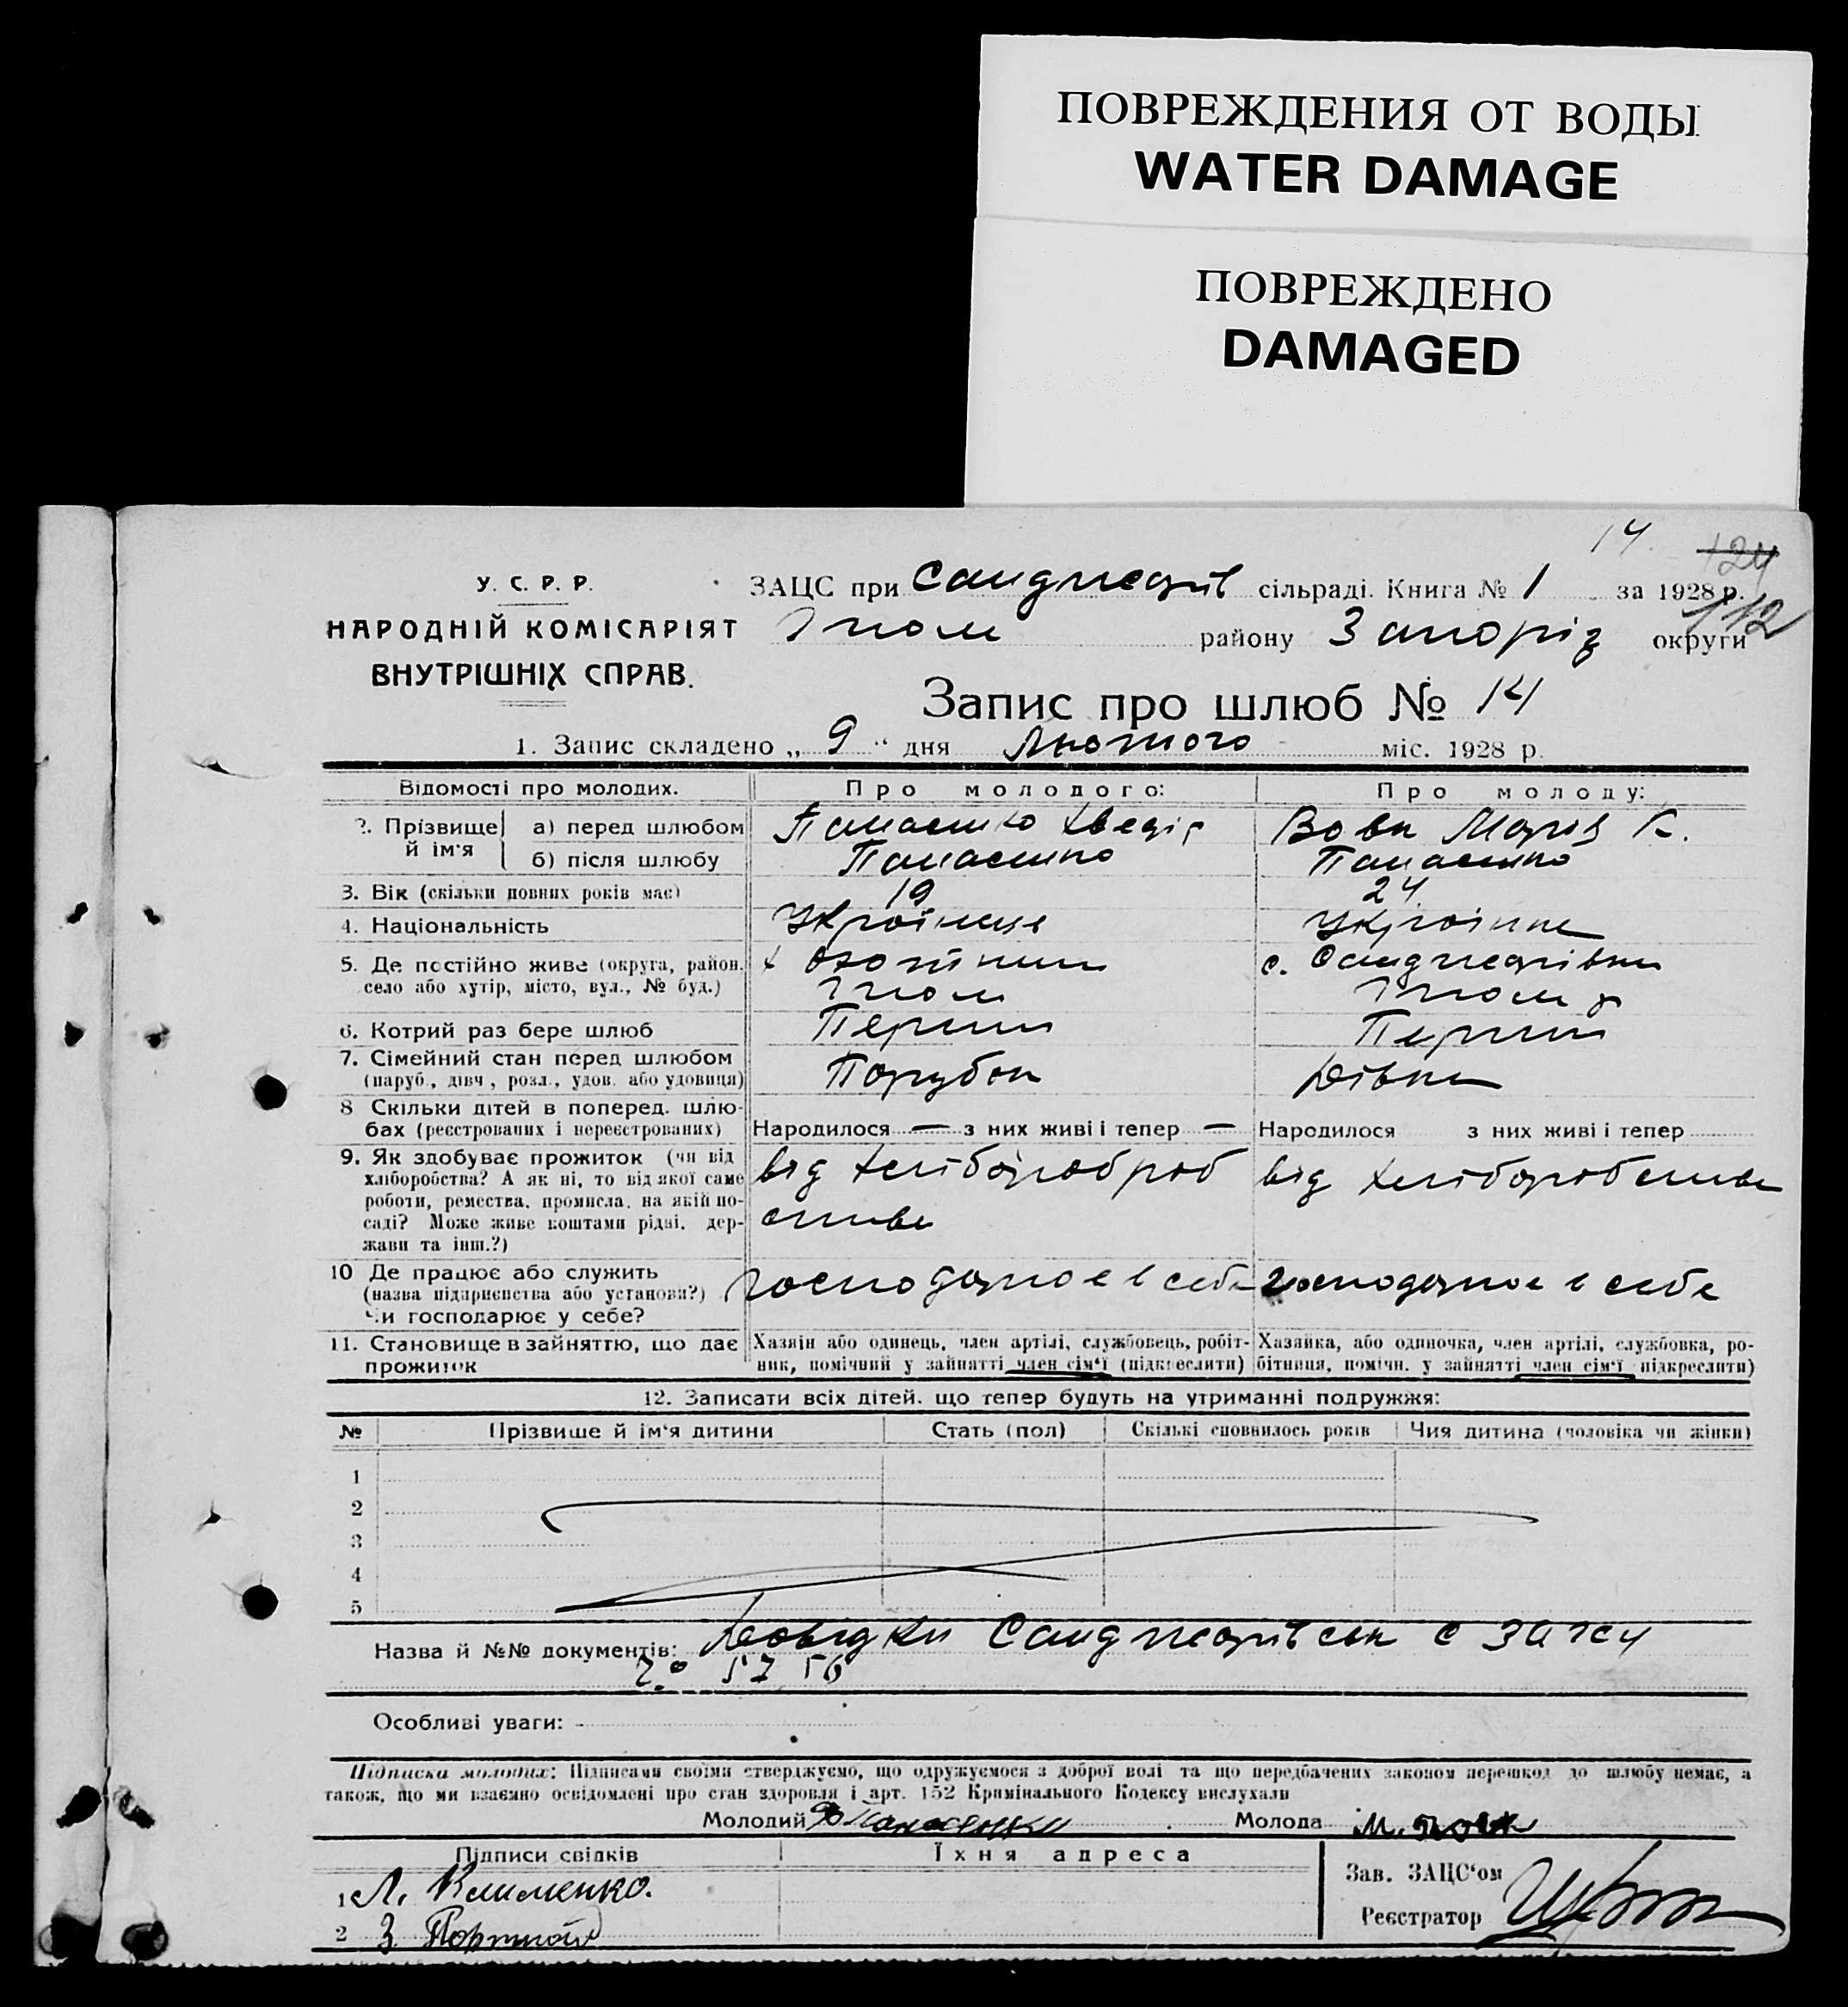 ПОВРЕЖДЕНИЯ ОТ ВОДЫ
WATER DAMAGE
ПОВРЕЖДЕНО
DAMAGED
14. 124
У. С. Р. Р.
НАРОДНІЙ КОМІСАРІЯТ
ВНУТРІШНІХ СПРАВ.
ЗАЦС при сільраді. Книга № 1 за 1928 р.
112
району Запоріз округи
Запис про шлюб № 14
1. Запис складено „ 9 “ дня Лютого міс. 1928 р.
Відомості про молодих. Про молодого: Про молоду:
2. Прізвище й ім'я а) перед шлюбом Панасенко Хведір Вовк Марія К.
б) після шлюбу Панасенко Панасенко
3. Вік (скільки повних років має) 19 24
4. Національність Українець Українка
5. Де постійно живе (округа, район, село або хутір, місто, вул., № буд.) х с.
6. Котрий раз бере шлюб Перший Перший
7. Сімейний стан перед шлюбом (паруб., дівч., розл., удов. або удовиця) Парубок Дівка
8 Скільки дітей в поперед. шлюбах (реєстрованих і нереєстрованих) Народилося — з них живі і тепер — Народилося з них живі і тепер
9. Як здобуває прожиток (чи від хліборобства? А як ні, то від якої саме роботи, ремества, промисла, на якій посаді? Може живе коштами рідні, держави та інш.?) від від хліборобства
10 Де працює або служить (назва підприємства або установи?) Чи господарює у себе? господарює в себе господарює в себе
11. Становище в зайняттю, що дає прожиток Хазяїн або одинець, член артілі, службовець, робітник, помічний у зайнятті член сім'ї (підкреслити) Хазяйка, або одиночка, член артілі, службовка, робітниця, помічн. у зайнятті член сім'ї підкреслити)
12. Записати всіх дітей, що тепер будуть на утриманні подружжя:
№ Прізвище й ім'я дитини Стать (пол) Скількі сповнилось років Чия дитина (чоловіка чи жінки)
1
2
3
4
5
Назва й №№ документів: Довідки
57 56
Особливі уваги:
Підписка молодих: Підписами своїми стверджуємо, що одружуємося з доброї волі та що передбачених законом перешкод до шлюбу немає, а
також, що ми взаємно освідомлені про стан здоровля і арт. 152 Кримінального Кодексу вислухали
Молодий Молода
Підписи свідків Їхня адреса
Зав. ЗАЦС'ом
1 Л. Клименко.
Реєстратор
2 З